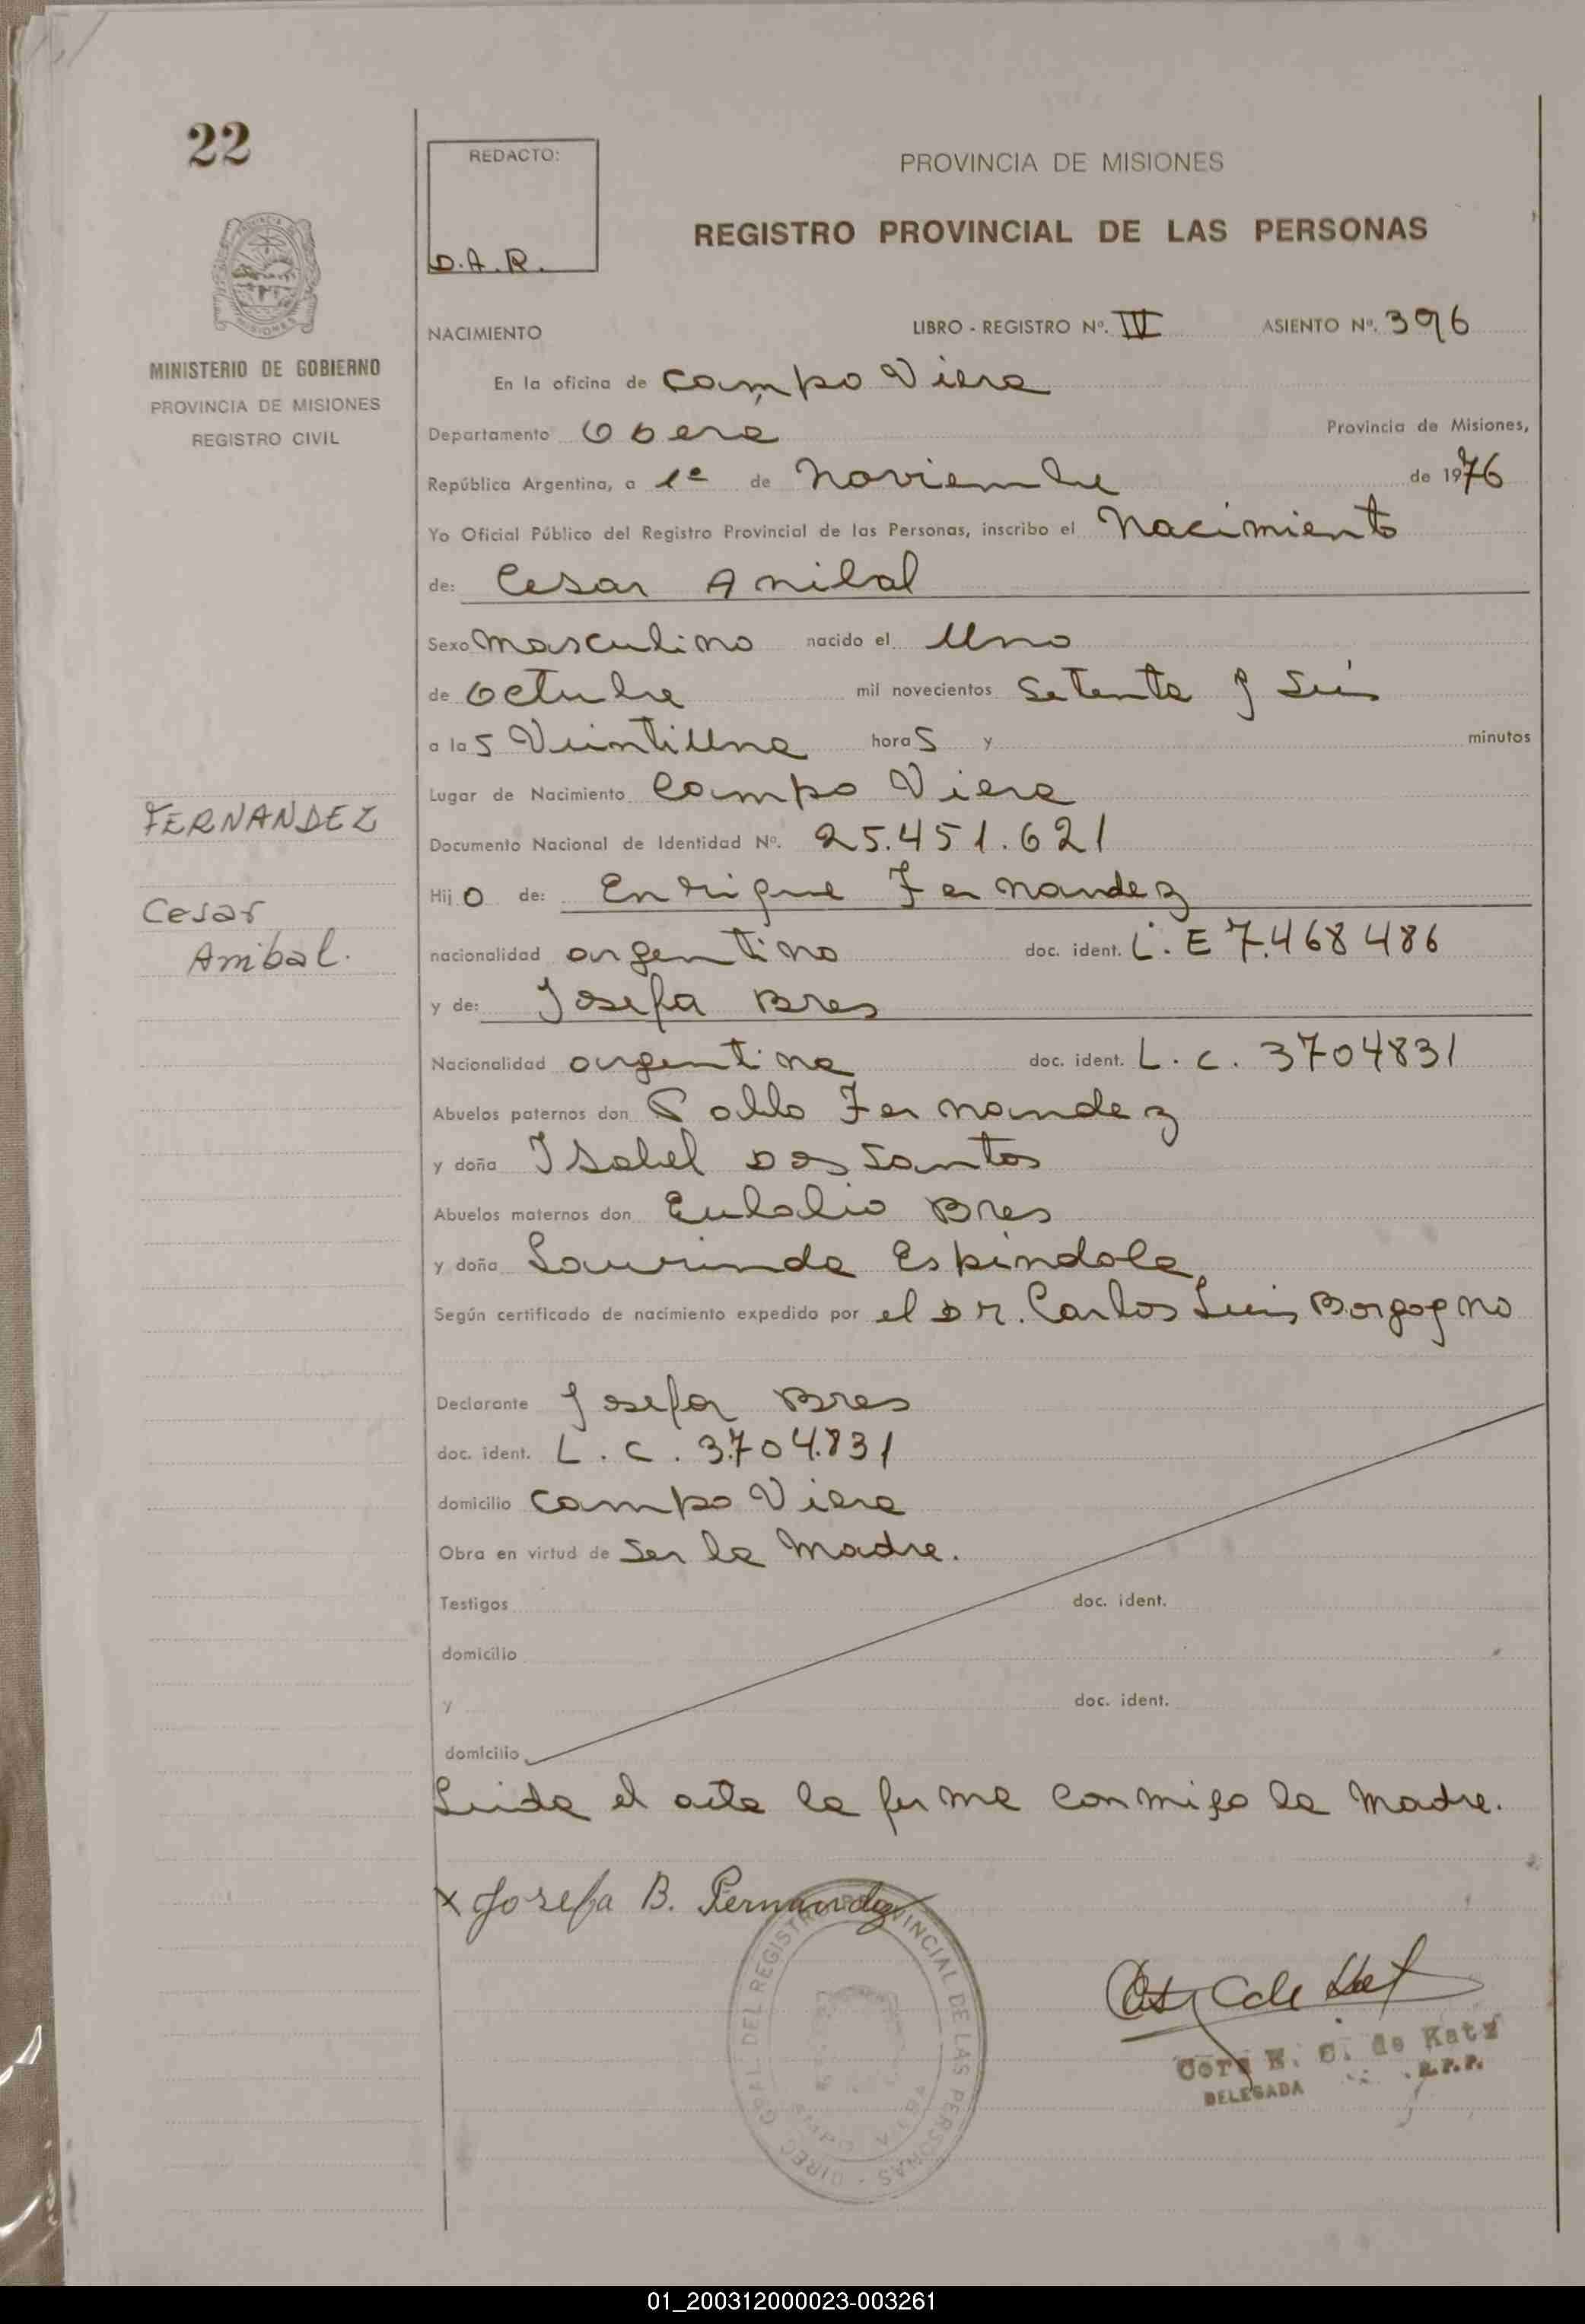 22
REDACTO:
D.A.R.
PROVINCIA DE MISIONES
REGISTRO PROVINCIAL DE LAS PERSONAS
MINISTERIO DE GOBIERNO
PROVINCIA DE MISIONES
REGISTRO CIVIL
NACIMIENTO LIBRO - REGISTRO Nº. IV ASIENTO Nº. 396
En la oficina de Campo Viera
Departamento Obera Provincia de Misiones,
República Argentina, a 1º de Noviembre de 1976
Yo Oficial Público del Registro Provincial de las Personas, inscribo el Nacimiento
de: Cesar Anibal
Sexo Masculino nacido el Uno
de Octubre mil novecientos Setenta y Seis
a las Veintiuna horas y minutos
Lugar de Nacimiento Campo Viera
FERNANDEZ
Documento Nacional de Identidad Nº. 25.451.621
Hijo de: Enrique Fernandez
Cesar
Anibal.
nacionalidad argentino doc. ident. L.E 7.468486
y de: Josefa Bres
Nacionalidad argentina doc. ident. L.C. 3704831
Abuelos paternos don Pablo Fernandez
y doña Isabel Dos Santos
Abuelos maternos don Eulalio Bres
y doña Laurinda Espindola,
Según certificado de nacimiento expedido por el Dr. Carlos Luis Borgogno
Declarante Josefa Bres
doc. ident. L.C. 3.704.831
domicilio Campo Viera
Obra en virtud de Ser la Madre.
Testigos doc. ident.
domicilio
y doc. ident.
domicilio
Leida el acta la firma conmigo la Madre.
x Josefa B. Fernandez
DIREC. GRAL DEL REGISTRO PROVINCIAL DE LAS PERSONAS
C. de Katz
DELEGADA R.P.P.
01_200312000023-003261